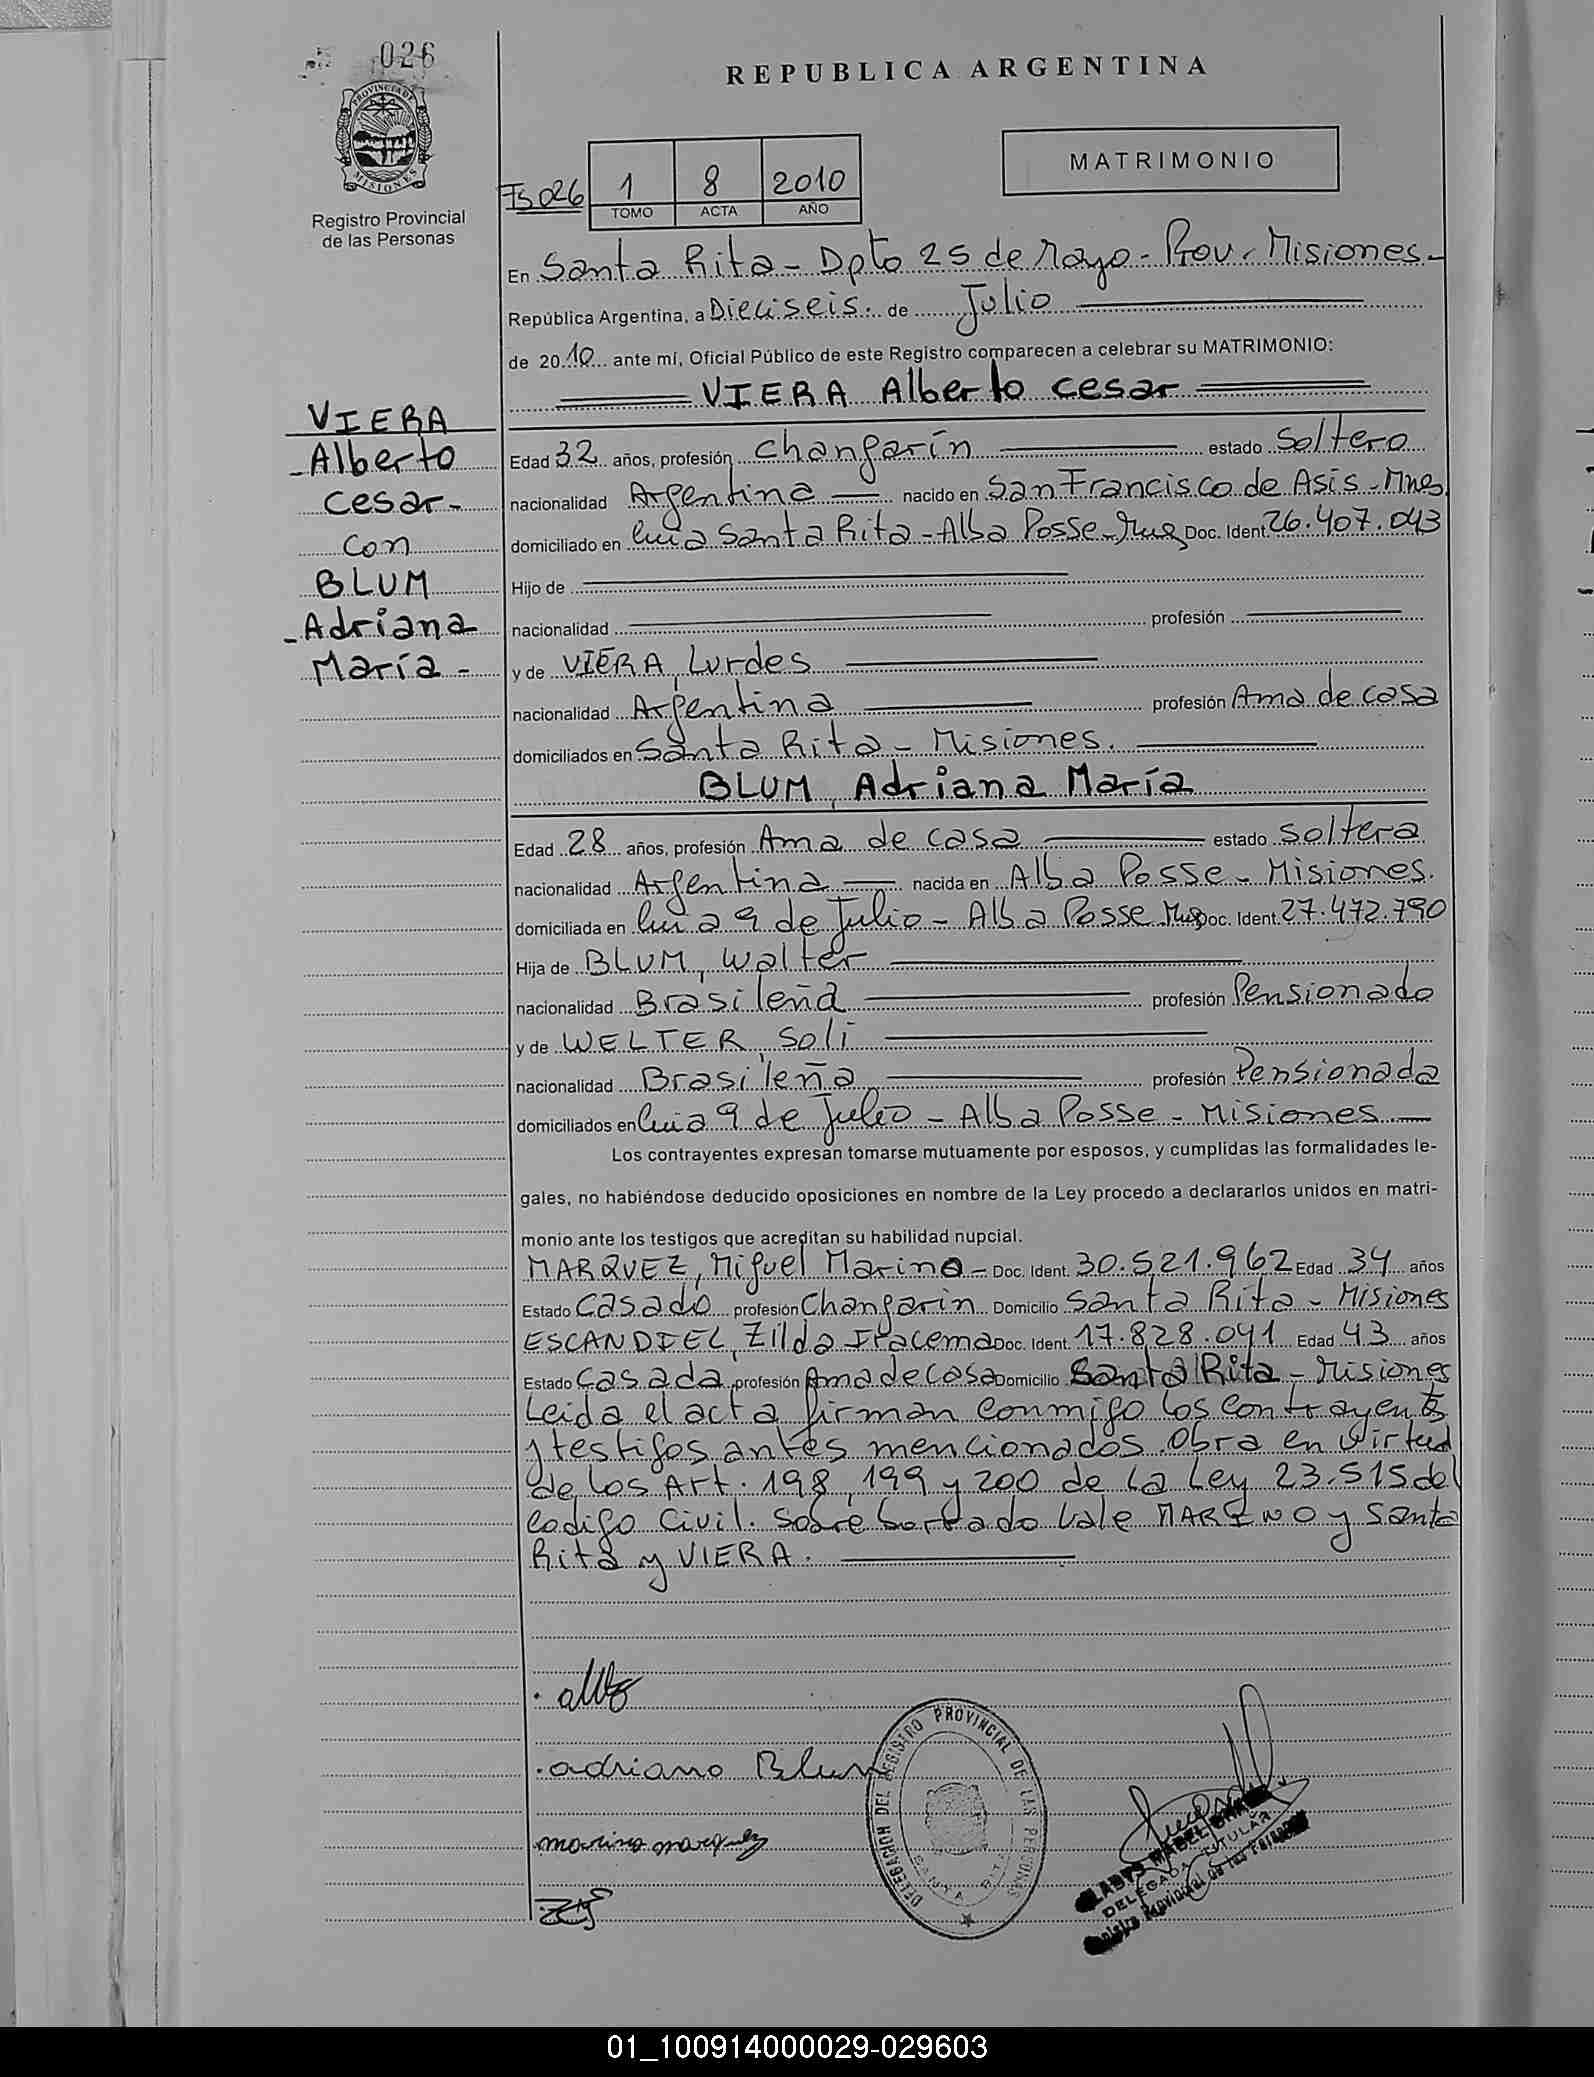 026
REPUBLICA ARGENTINA
PROVINCIA DE MISIONES
Registro Provincial
de las Personas
Fº 026
1 8 2010
TOMO ACTA AÑO
MATRIMONIO
En Santa Rita - Dpto 25 de Mayo - Prov. Misiones -
República Argentina, a Dieciseis. de Julio
de 2010 ante mí, Oficial Público de este Registro comparecen a celebrar su MATRIMONIO:
VIERA Alberto Cesar
VIERA
- Alberto
Cesar -
Con
BLUM
- Adriana
María -
Edad 32 años, profesión Changarín estado Soltero
nacionalidad Argentina — nacido en San Francisco de Asis - Mnes
domiciliado en Santa Rita - Alba Posse - Doc. Ident. 26.407.043
Hijo de
nacionalidad profesión
y de VIERA, Lurdes
nacionalidad Argentina profesión Ama de casa
domiciliados en Santa Rita - Misiones.
BLUM, Adriana María
Edad 28 años, profesión Ama de casa estado Soltera
nacionalidad Argentina — nacida en Alba Posse - Misiones.
domiciliada en 9 de Julio - Alba Posse Doc. Ident. 27.472.790
Hija de BLUM, Walter
nacionalidad Brasileña profesión Pensionado
y de WELTER, Soli
nacionalidad Brasileña profesión Pensionada
domiciliados en 9 de Julio - Alba Posse - Misiones. —
Los contrayentes expresan tomarse mutuamente por esposos, y cumplidas las formalidades le-
gales, no habiéndose deducido oposiciones en nombre de la Ley procedo a declararlos unidos en matri-
monio ante los testigos que acreditan su habilidad nupcial.
MARQUEZ, Miguel Marino - Doc. Ident. 30.521.962 Edad 34 años
Estado Casado profesión Changarin Domicilio Santa Rita - Misiones
ESCANDIEL, Zilda Iracema Doc. Ident. 17.828.041 Edad 43 años
Estado Casada profesión Ama de Casa Domicilio Santa Rita - Misiones
Leida el acta firman conmigo los contrayentes
y testigos antes mencionados. Obra en virtud
de los Art. 198, 199 y 200 de la Ley 23.515 del
Codigo Civil. Sobre borrado Vale MARINO y Santa
Rita y VIERA.
adriano Blum
marino marquez
DELEGACION DEL REGISTRO PROVINCIAL DE LAS PERSONAS
SANTA RITA
GLADYS MABEL
DELEGADA TITULAR
Registro Provincial de las Personas
01_100914000029-029603